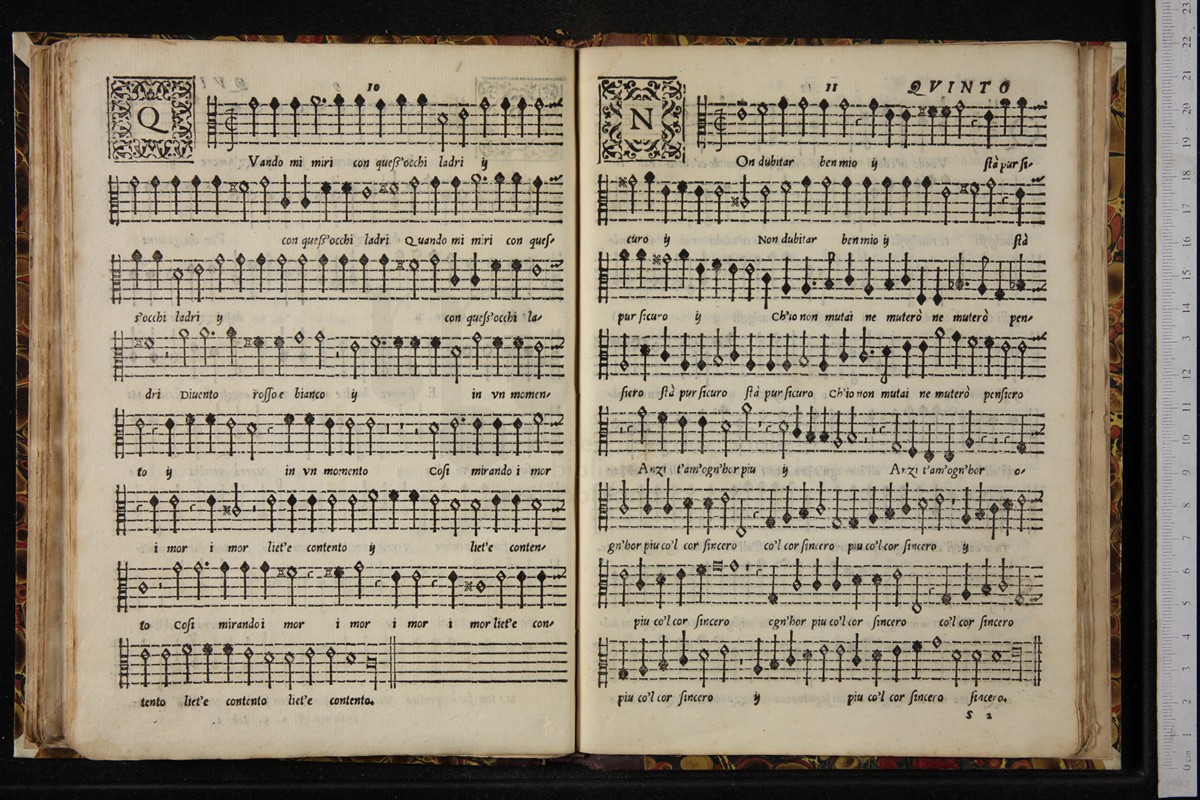 10
Q
Vando mi miri con quest'occhi ladri ij
con quest'occhi ladri Quando mi miri con ques-
s'occhi ladri ij con quest'occhi la-
dri Diuento rosso e bianco ij E in vn momen-
to ij in vn momento Cosi mirando i mor
i mor i mor liet'e contento ij liet'e conten-
to Cosi mirando i mor i mor i mor i mor liet'e con-
tento liet'e contento liet'e contento.
11 QVINTO
N
On dubitar ben mio ij stà pur si-
curo ij Non dubitar ben mio ij stà
pur sicuro ij Ch'io non mutai ne muterò ne muterò pen-
siero stà pur sicuro stà pur sicuro Ch'io non mutai ne muterò pensiero
Anzi t'am'ogn'hor piu ij Anzi t'am'ogn'hor o-
gn'hor piu co'l cor sincero co'l cor sincero piu co'l cor sincero ij
piu co'l cor sincero ogn'hor piu co'l cor sincero co'l cor sincero
piu co'l cor sincero ij piu co'l cor sincero sincero.
S 2
0 cm 1 2 3 4 5 6 7 8 9 10 11 12 13 14 15 16 17 18 19 20 21 22 23